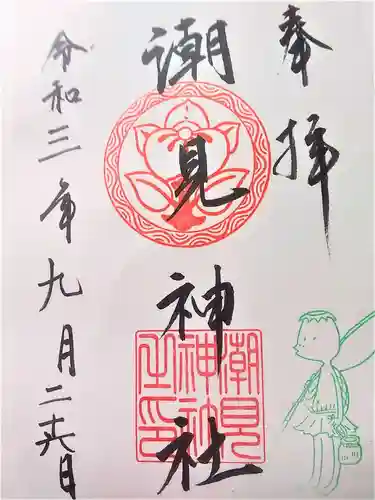 奉拝
潮見神社
潮見
神社
之印
令和三年九月二十六日